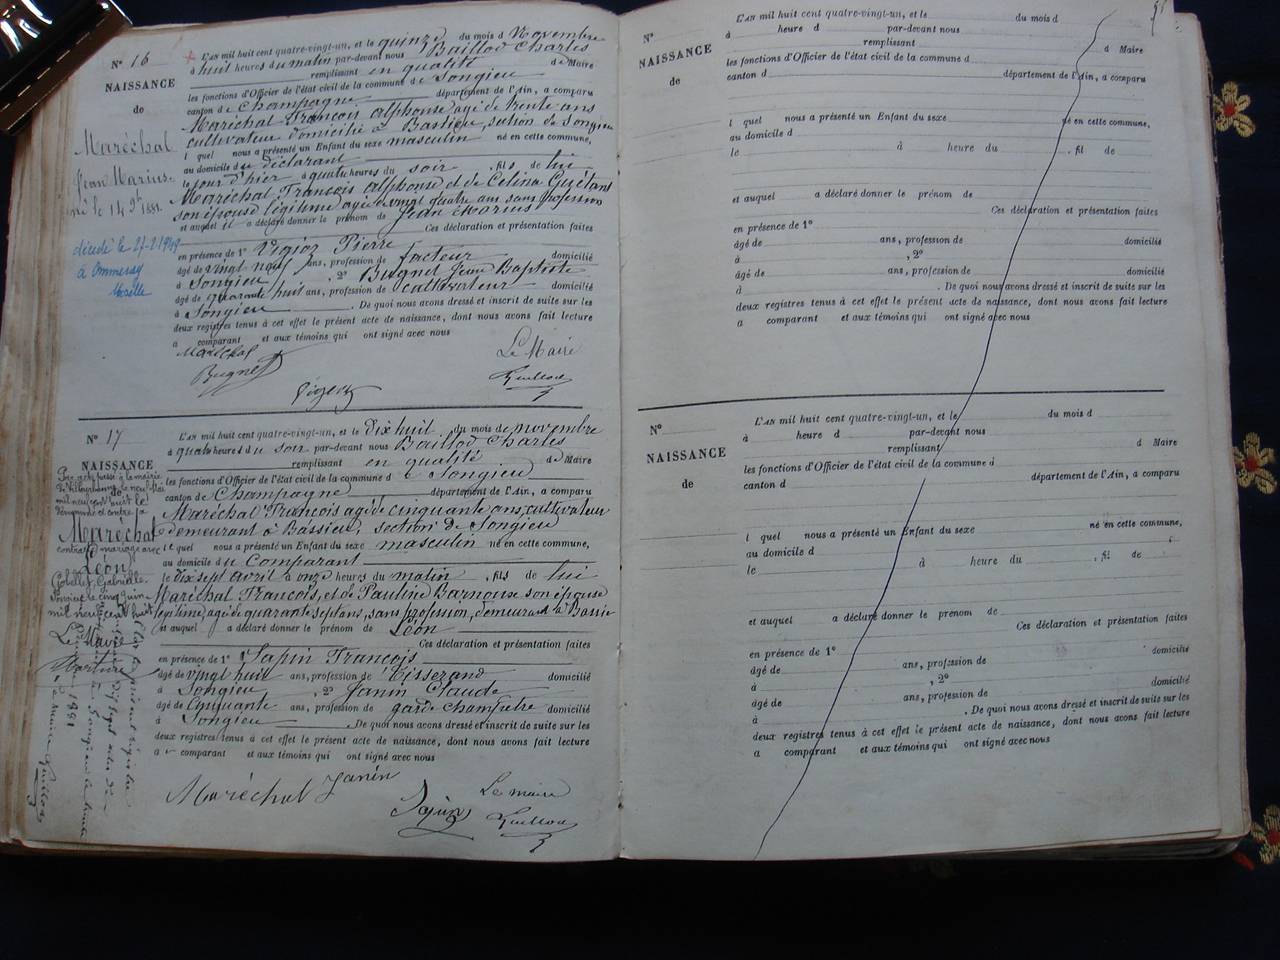 N° 16
NAISSANCE
de
Maréchal
Jean Marius
né le 14 9bre 1881.
décédé le 27-2-1949
à Ommeray
Moselle
L'AN mil huit cent quatre-vingt-un, et le quinze du mois d Novembre
à huit heures du matin par-devant nous Baillod Charles
remplissant en qualité de Maire
les fonctions d'Officier de l'état civil de la commune de Songieu
canton de Champagne département de l'Ain, a comparu
Maréchal François alphonse agé de trente ans
cultivateur domicilié à Bassieu, section de Songieu
l quel nous a présenté un Enfant du sexe masculin né en cette commune,
au domicile du déclarant
le jour d'hier à quatre heures du soir, fils de lui
Maréchal François alphonse et de Celina Guétant
son épouse légitime agée de vingt quatre ans sans profession
et auquel il a déclaré donner le prénom de Jean Marius
Ces déclaration et présentation faites
en présence de 1° Vigioz Pierre
âgé de vingt neuf ans, profession de facteur domicilié
à Songieu, 2° Bugnet Jean Baptiste
âgé de quarante huit ans, profession de cultivateur domicilié
à Songieu. De quoi nous avons dressé et inscrit de suite sur les
deux registres tenus à cet effet le présent acte de naissance, dont nous avons fait lecture
a comparant et aux témoins qui ont signé avec nous
Maréchal
Le Maire
Bugnet
N° 17
NAISSANCE
de
Maréchal
Léon
contracté mariage avec
Gabrielle
Le Maire
L'AN mil huit cent quatre-vingt-un, et le Dix huit du mois de novembre
à quatre heures du soir par-devant nous Baillod Charles
remplissant en qualité de Maire
les fonctions d'Officier de l'état civil de la commune d e Songieu
canton de Champagne département de l'Ain, a comparu
Maréchal François agé de cinquante ans, cultivateur
demeurant à Bassieu, section de Songieu
l e quel nous a présenté un Enfant du sexe masculin né en cette commune,
au domicile du Comparant
le dix sept avril à onze heures du matin, fils de lui
Maréchal François, et de Pauline Barnouse son épouse
légitime, agée de quarante sept ans, sans profession, demeurant à Bassieu
et auquel a déclaré donner le prénom de Léon
Ces déclaration et présentation faites
en présence de 1° Sapin François
âgé de vingt huit ans, profession de Tisserand domicilié
à Songieu, 2° Janin Claude
âgé de Cinquante ans, profession de garde champêtre domicilié
à Songieu. De quoi nous avons dressé et inscrit de suite sur les
deux registres tenus à cet effet le présent acte de naissance, dont nous avons fait lecture
a comparant et aux témoins qui ont signé avec nous
Maréchal Janin
Sapin
Le maire
N°
NAISSANCE
de
L'AN mil huit cent quatre-vingt-un, et le du mois d
à heure d par-devant nous
remplissant d Maire
les fonctions d'Officier de l'état civil de la commune d
canton d département de l'Ain, a comparu
l quel nous a présenté un Enfant du sexe né en cette commune,
au domicile d
le à heure du, fil de
et auquel a déclaré donner le prénom de
Ces déclaration et présentation faites
en présence de 1°
âgé de ans, profession de domicilié
à, 2°
âgé de ans, profession de domicilié
à. De quoi nous avons dressé et inscrit de suite sur les
deux registres tenus à cet effet le présent acte de naissance, dont nous avons fait lecture
a comparant et aux témoins qui ont signé avec nous
N°
NAISSANCE
de
L'AN mil huit cent quatre-vingt-un, et le du mois d
à heure d par-devant nous
remplissant d Maire
les fonctions d'Officier de l'état civil de la commune d
canton d département de l'Ain, a comparu
l quel nous a présenté un Enfant du sexe né en cette commune,
au domicile d
le à heure du, fil de
et auquel a déclaré donner le prénom de
Ces déclaration et présentation faites
en présence de 1°
âgé de ans, profession de domicilié
à, 2°
âgé de ans, profession de domicilié
à. De quoi nous avons dressé et inscrit de suite sur les
deux registres tenus à cet effet le présent acte de naissance, dont nous avons fait lecture
a comparant et aux témoins qui ont signé avec nous